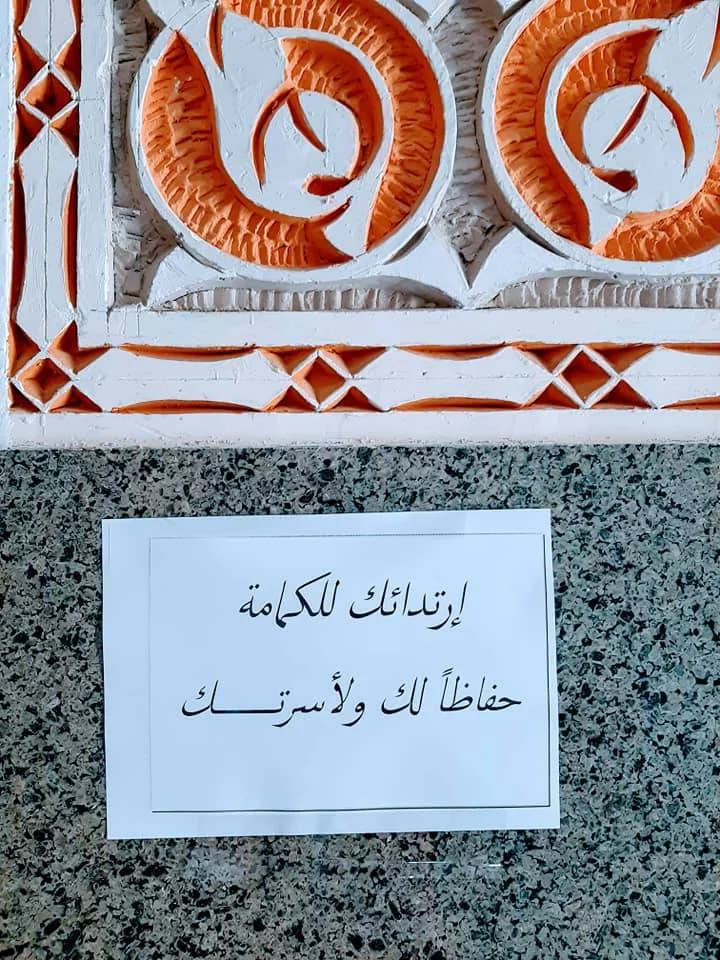 إرتدائك للكمامة
حفاظاً لك ولأسرتـــــك